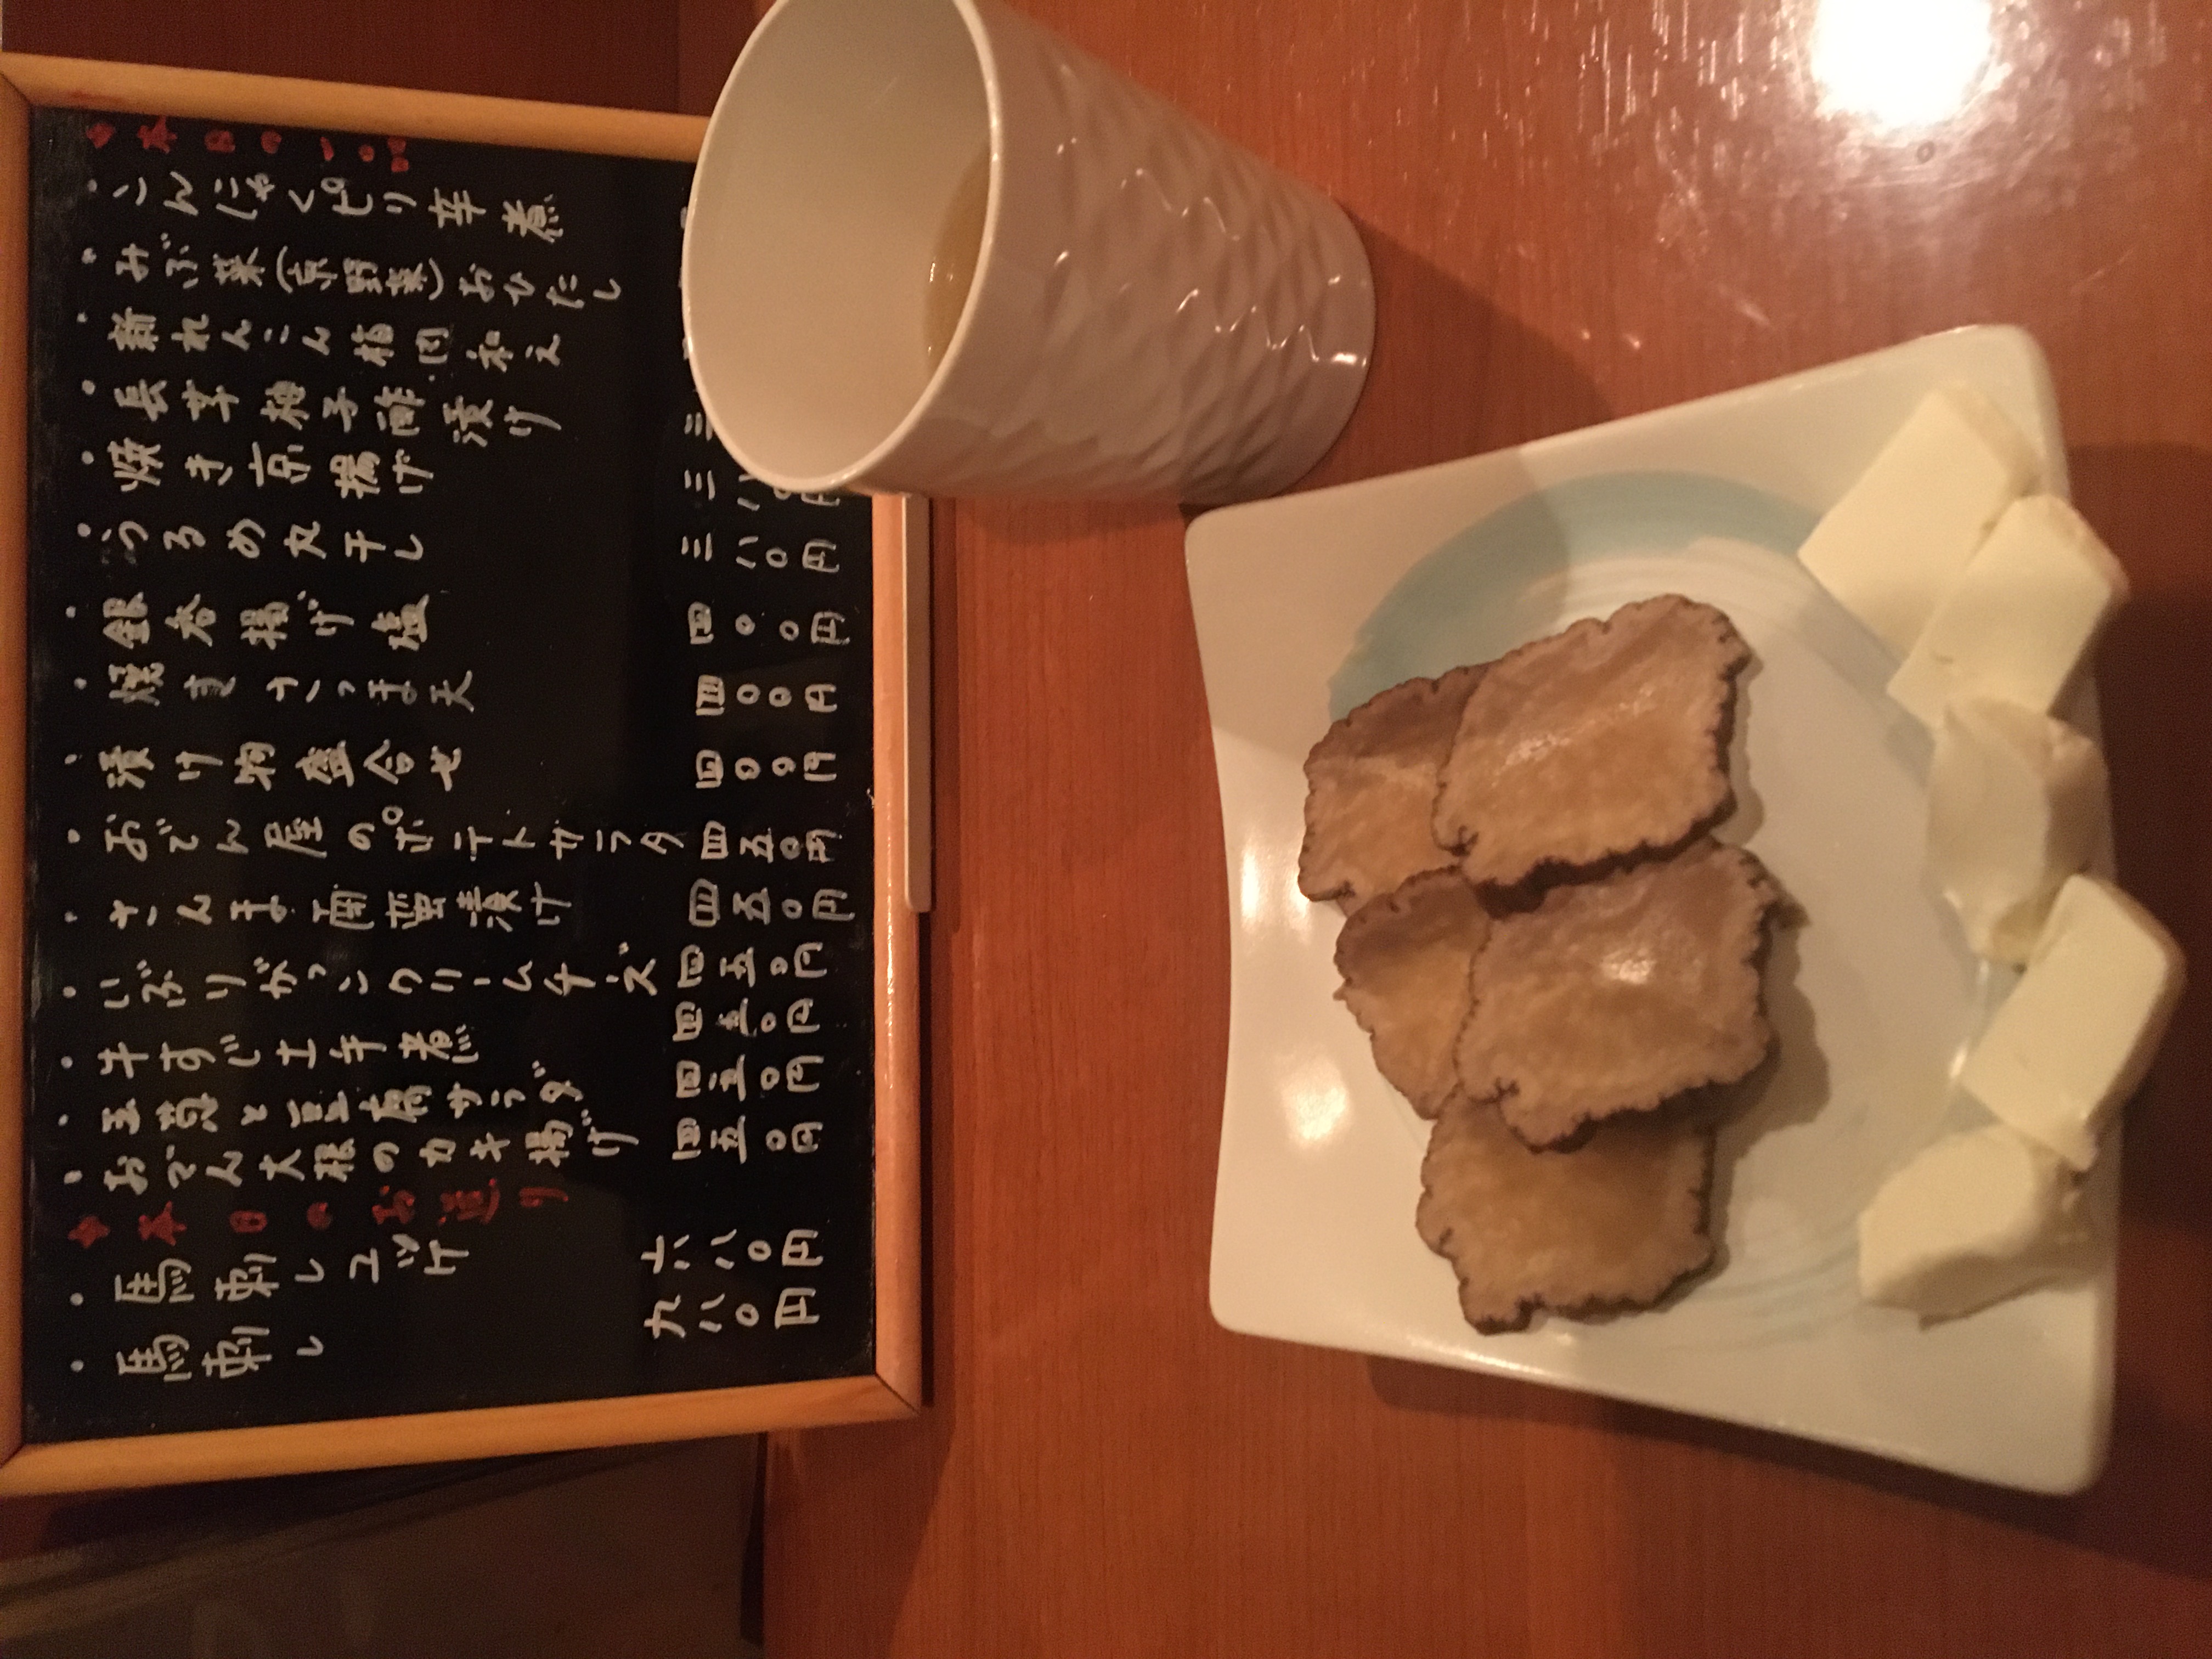 ☆本日の一品
・こんにゃくピリ辛煮
・みぶ菜(京野菜)おひたし
・新れんこん梅肉和え
・長芋柚子酢漬け 三
・焼き京揚げ 三八〇円
・うるめ丸干し 三八〇円
・銀杏揚げ塩 四〇〇円
・焼きさつま天 四〇〇円
・漬け物盛合せ 四〇〇円
・おでん屋のポテトサラダ 四五〇円
・さんま南蛮漬け 四五〇円
・いぶりがっこクリームチーズ 四五〇円
・牛すじ土手煮 四五〇円
・玉葱と豆腐サラダ 四五〇円
・おでん大根のカキ揚げ 四五〇円
☆本日のお造り
・馬刺しユッケ 六八〇円
・馬刺し 九八〇円